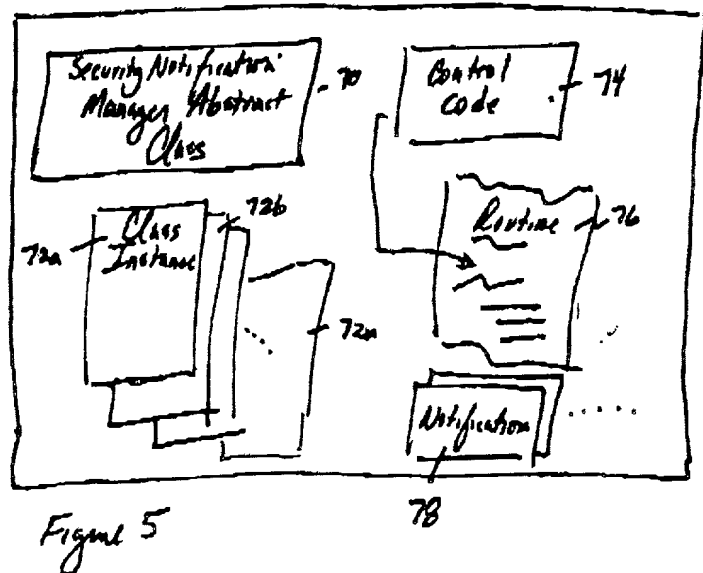 Security Notification
Manager Abstract
Class
70
Control
Code
74
72a
Class
Instance
72b
72n
Routine
76
Notification
78
Figure 5